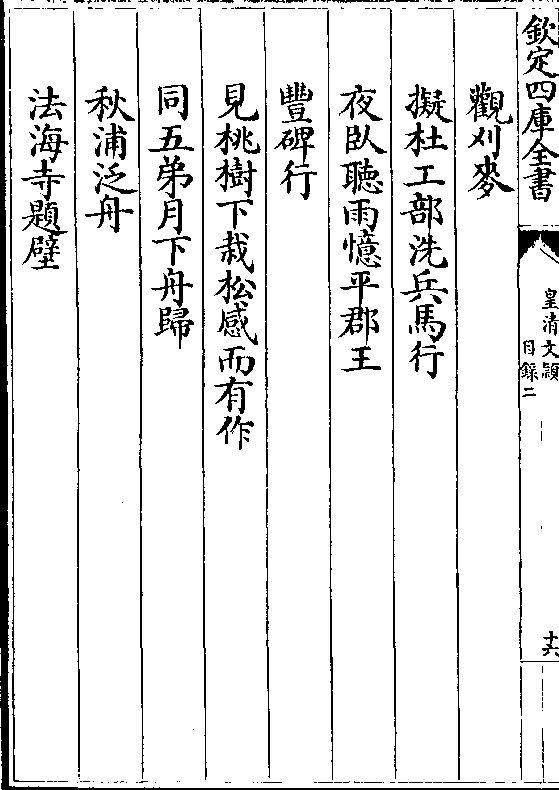 欽定四庫全書
皇清文穎
目錄二
十六
觀刈麥
擬杜工部洗兵馬行
夜臥聽雨憶平郡王
豐碑行
見桃樹下栽松感而有作
同五弟月下舟歸
秋浦泛舟
法海寺題壁